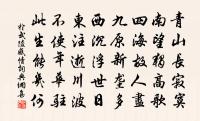 青山長寂寞
南望獨高歌
四海故人盡
九原新壟多
西沉浮世日
東注逝川波
不使年華駐
此生能幾何
於武陵感情詞典網書